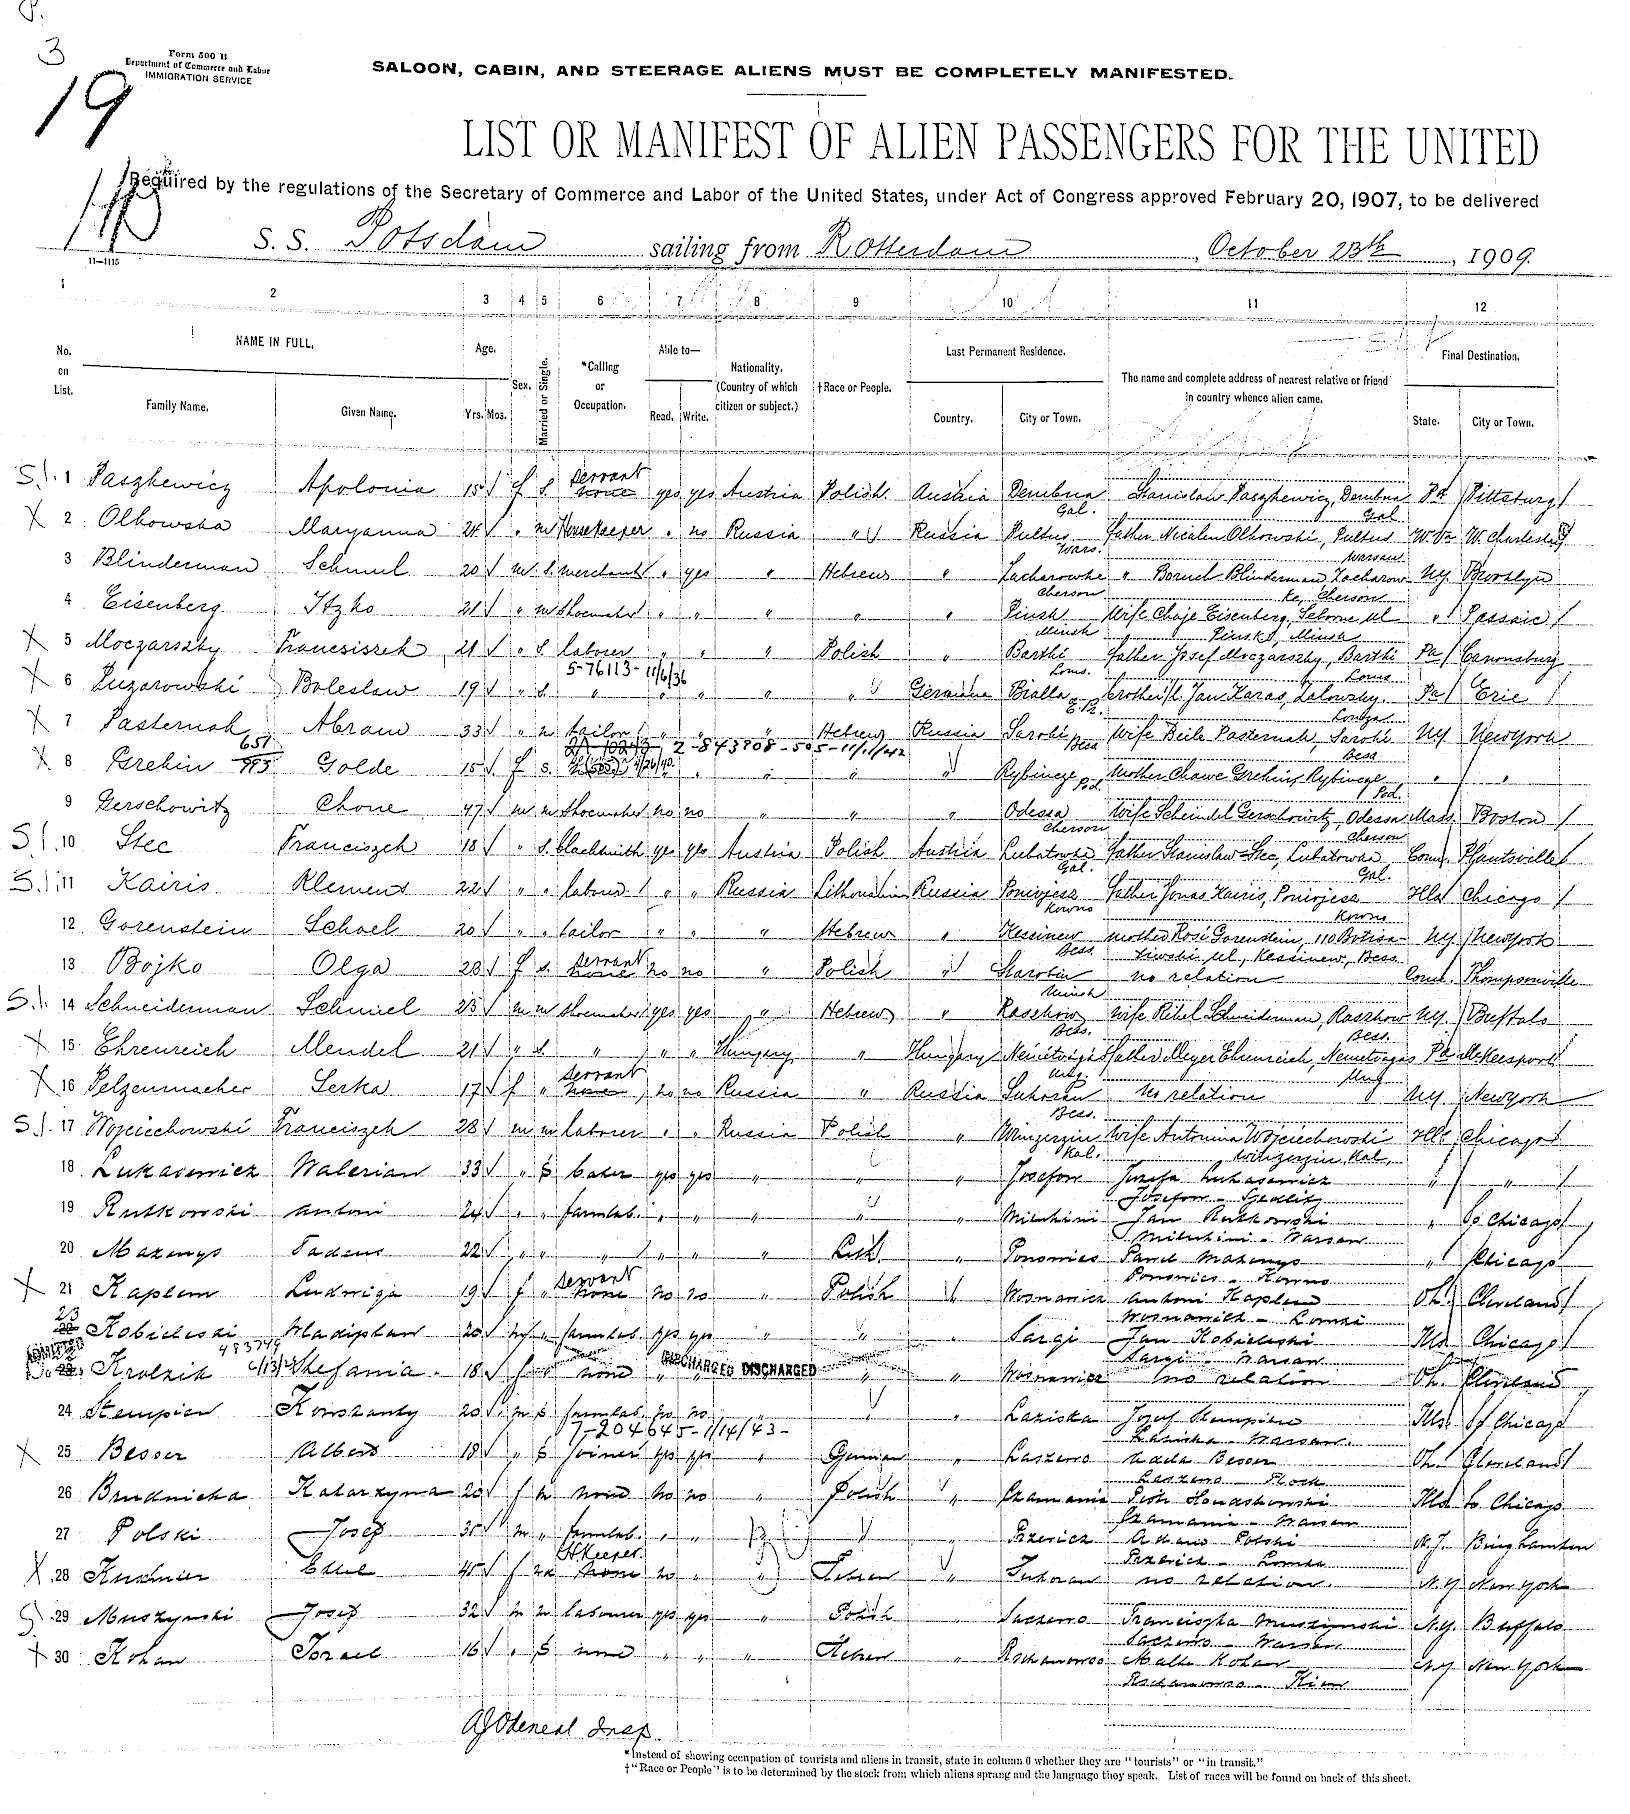 3
19
Form 500 B
Department of Commerce and Labor
IMMIGRATION SERVICE
SALOON, CABIN, AND STEERAGE ALIENS MUST BE COMPLETELY MANIFESTED.
LIST OR MANIFEST OF ALIEN PASSENGERS FOR THE UNITED
Required by the regulations of the Secretary of Commerce and Labor of the United States, under Act of Congress approved February 20, 1907, to be delivered
S. S. Potsdam sailing from Rotterdam October 23th, 1909.
11—1115
1 2 3 4 5 6 7 8 9 10 11 12
No. on List. NAME IN FULL. Age. Sex. Married or Single. *Calling or Occupation. Able to— Nationality. (Country of which citizen or subject.) †Race or People. Last Permanent Residence. The name and complete address of nearest relative or friend in country whence alien came. Final Destination.
Family Name. Given Name. Yrs. Mos. Read. Write. Country. City or Town. State. City or Town.
S.I. 1 Paszkewicz Apolonia 15 f s servant none yes yes Austria Polish Austria Dembna Gal. Stanislaw Paszkewicz, Dembna Gal. Pa Pittsburg
X 2 Olkowska Maryanna 24 " m Housekeeper " no Russia " Russia Pultus Wars. father Nicalen Olkowski, Pultus Warsaw W.Va W. Charleston
3 Blinderman Schmul 20 m s merchant " yes " Hebrew " Zacharowke Cherson " Boruch Blinderman, Zacharowke, Cherson NY. Brooklyn
4 Eisenberg Itzko 21 " m shoemaker " " " " " Pinsk Minsk Wife Chaje Eisenberg, Pinsk, Minsk " Passaic
X 5 Moczarszky Franciszek 21 " s laborer " " " Polish " Barthi Loms. father Josef Moczarszky, Barthi Loms Pa Canonsburg
5-76113-11/6/36
X 6 Puzarowski Boleslaw 19 " s " " " " " Germany Bialla brother i/l. Jan Karas, Pa Erie
X 7 Pasternak Abram 33 " m tailor " " " Hebrew Russia Saroki Bess Wife Beile Pasternak, Saroki Bess NY. New York
2-843908-505-11/11/42
X 8 Grekin 651 Golde 15 f s " " " " Rybincze Pod. mother Chawe Grekin, Rybincze Pod. " "
9 Gerschowitz Chone 47 m m shoemaker no no " " " Odessa Cherson Wife Scheindel Gerschowitz, Odessa Cherson Mass. Boston
S.I. 10 Stec Franciszek 18 " s. blacksmith yes yes Austria Polish Austria Lubatowka Gal. father Stanislaw Stec, Lubatowka Gal. Conn.
S.I. 11 Kairis Klemens 22 " " labour " " Russia Lithuanian Russia Ponivjesz Kowno father Jonas Kairis, Ponivjesz Kowno Ills Chicago
12 Gorenstein Schoel 20 " " tailor " " " Hebrew " Kessinew Bess. mother Rosi Gorenstein, 110 Kessinew, Bess NY New York
13 Bojko Olga 20 f s. servant none no no " Polish " Starobin Minsk no relation Conn. Thompsonville
S.I. 14 Schneiderman Schmiel 23 m m shoemaker yes yes " Hebrew " Raszkow Bess. wife Rebel Schneiderman, Raszkow Bess. NY. Buffalo
X 15 Ehrenreich Mendel 21 " s " " " Hungary " Hungary Nemetvagas Ung. father Meyer Ehrenreich, Nemetvagas Ung Pa McKeesport
X 16 Pelzenmacher Serka 17 f " servant none no no Russia " Russia Suhoran Bess. no relation NY New York
S.I. 17 Wojciechowski Franciszek 28 m m laborer " " Russia Polish " Winzerzin Kal. wife Antonina Wojciechowski Winzerzin, Kal, Ills Chicago
18 Lukasewicz Walerian 33 " s baker yes yes " " " Josefow Jozefa Lukasewicz Josefow - Siedlitz " "
19 Rutkowski Antoni 24 " " farmlab. " " " " " Miluhini Jan Rutkowski Miluhini - Warsaw " So Chicago
20 Mazenys Tadeus 22 " " " " " " Lith. " Ponomies Pawel Mazenys Ponomies - Kowno " Chicago
X 21 Kaplem Ludwiga 19 f " servant none no no " Polish " Wosnawicz Antoni Kaplem Wosnawich - Lomza Oh. Cleveland
23 Kobieleski Wladislaw 20 m " farmlab. yes yes " " " Sargi Jan Kobieleski Sargi - Warsaw Ills Chicago
ADMITTED
483749
Krolzik Stefania 18 f " none " " DISCHARGED DISCHARGED " " Wosnawicz no relation Oh. Cleveland
24 Stempien Konstanty 20 m s farmlab. no no " " " Laziska Josef Stempien Laziska - Warsaw. Ills So Chicago
7-204645-1/14/43-
X 25 Besser Albert 18 " s joiner yes yes " German " Laszewo Besser Laszewo - Plock Oh. Cleveland
26 Brudnicka Katarzyma 20 f m none no no " Polish " Szamania Piotr Szamania - Warsaw Ills So Chicago
27 Polski Josef 35 m " farmlab. " " " " Pazericz Adam Polski Pazerich - Lomza N.J. Binghamton
X 28 Kushnier 45 f H Keeper none no " " Hebrew " Suhoran no relation. N.Y New York
S 29 Muszynski Josef 32 m m labourer yes yes " Polish " Saczewo Franciszka Muszynski Saczewo - Warsaw N.Y. Buffalo
X 30 Kohan Israel 16 " s none " " " Hebrew " Malke Kohan Kiew N.Y New York
AJ Odeneal Insp.
*Instead of showing occupation of tourists and aliens in transit, state in column 6 whether they are "tourists" or "in transit."
†"Race or People" is to be determined by the stock from which aliens sprang and the language they speak. List of races will be found on back of this sheet.